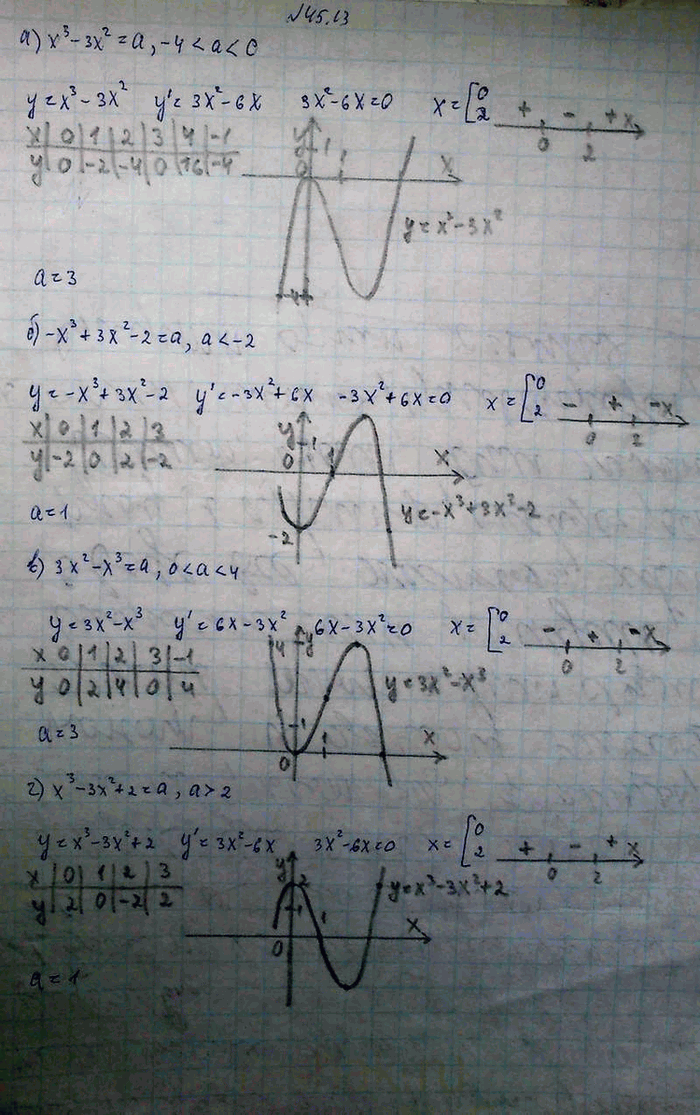 №45.13
а) x³-3x²=a, -4<a<0
y=x³-3x² y'=3x²-6x 3x²-6x=0 x=[0 2 + - + x 0 2
x | 0 | 1 | 2 | 3 | 4 | -1
y | 0 | -2 | -4 | 0 | 16 | -4
y 1 0 1 x
y=x³-3x²
-4
a=3
б) -x³+3x²-2=a, a<-2
y=-x³+3x²-2 y'=-3x²+6x -3x²+6x=0 x=[0 2 - + - x 0 2
x | 0 | 1 | 2 | 3
y | -2 | 0 | 2 | -2
y 1 0 1 x
y=-x³+3x²-2
-2
a=1
в) 3x²-x³=a, 0<a<4
y=3x²-x³ y'=6x-3x² 6x-3x²=0 x=[0 2 - + - x 0 2
x | 0 | 1 | 2 | 3 | -1
y | 0 | 2 | 4 | 0 | 4
4 y
y=3x²-x³
1 0 1 x
a=3
г) x³-3x²+2=a, a>2
y=x³-3x²+2 y'=3x²-6x 3x²-6x=0 x=[0 2 + - + x 0 2
x | 0 | 1 | 2 | 3
y | 2 | 0 | -2 | 2
y 2 1 0 1 x
y=x³-3x²+2
a=1